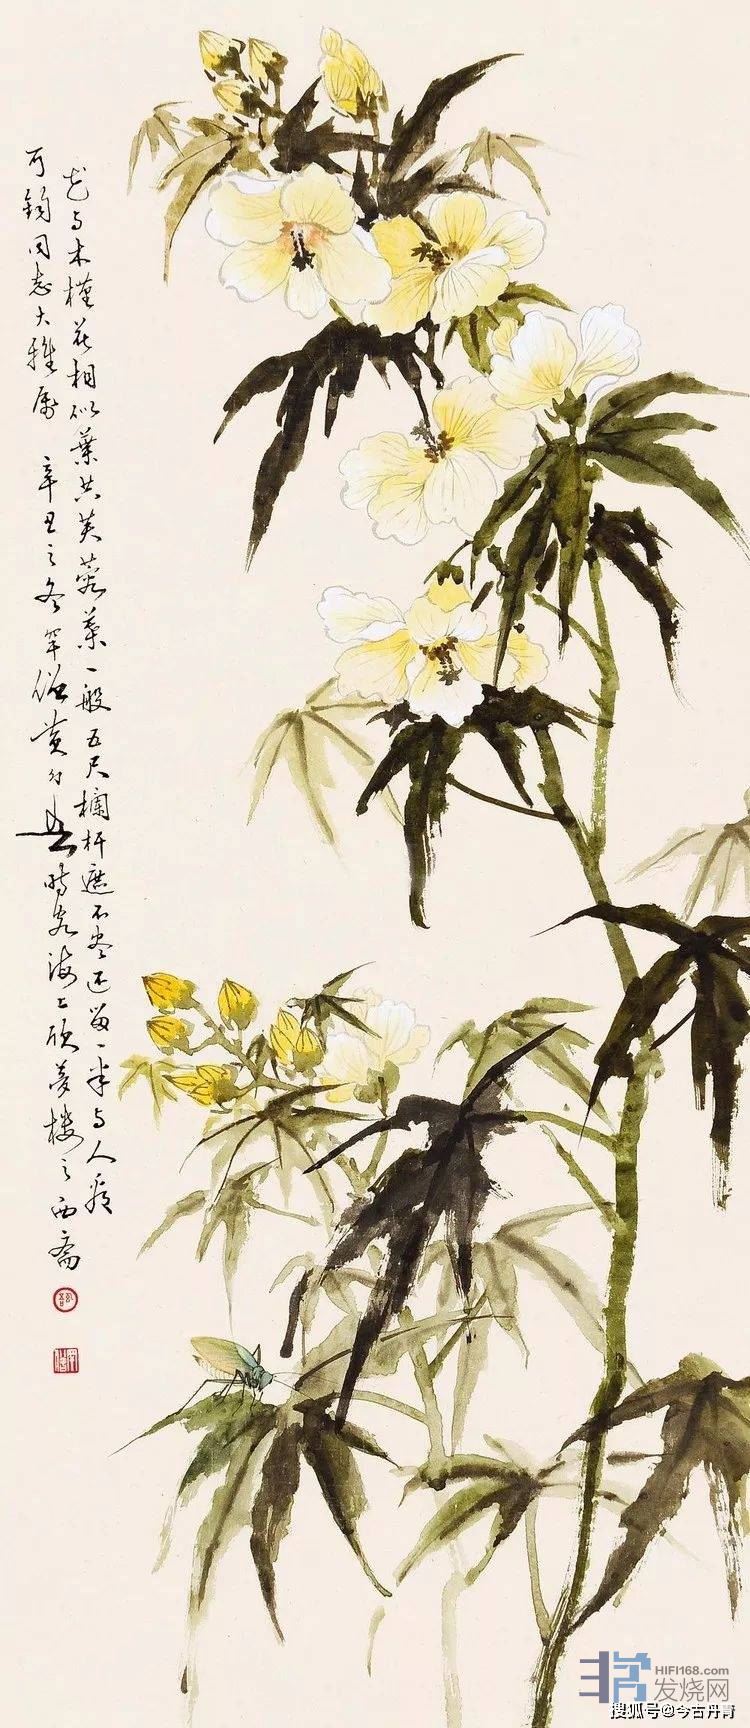 花与木槿花相似葉共芙蓉葉一般五尺欄杆遮不尽还留一半与人看
可鈞同志大雅属 辛丑之冬罕僧黄幻吾時客海上砚夢楼之西斋
HIFI168.com
发烧网
搜狐号@今古丹青